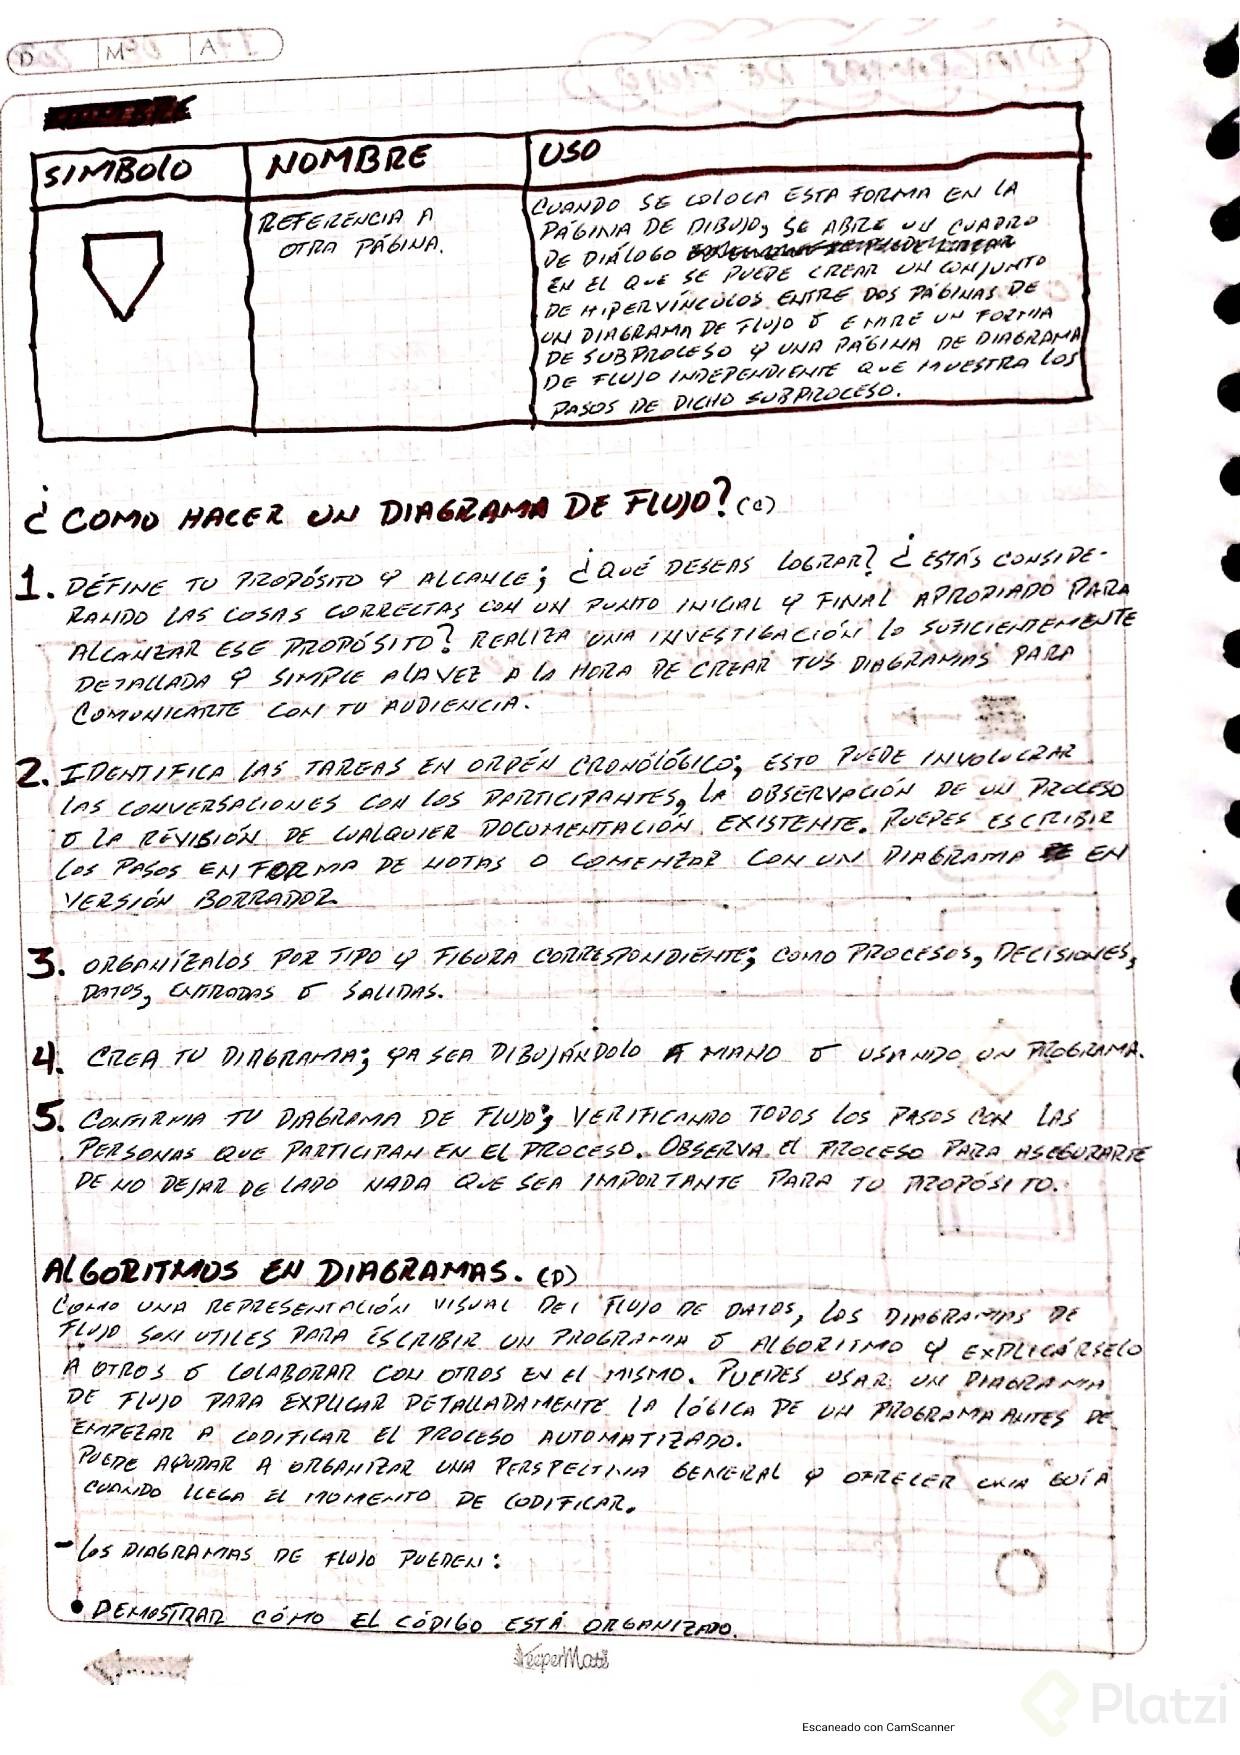 D M A
SIMBOLO NOMBRE USO
REFERENCIA A
OTRA PÁGINA.
CUANDO SE COLOCA ESTA FORMA EN LA
PÁGINA DE DIBUJO, SE ABRE UN CUADRO
DE DIÁLOGO
EN EL QUE SE PUEDE CREAR UN CONJUNTO
DE HIPERVÍNCULOS ENTRE DOS PÁGINAS DE
UN DIAGRAMA DE FLUJO Ó ENTRE UN FORMA
DE SUBPROCESO Y UNA PÁGINA DE DIAGRAMA
DE FLUJO INDEPENDIENTE QUE MUESTRA LOS
PASOS DE DICHO SUBPROCESO.
¿COMO HACER UN DIAGRAMA DE FLUJO? (C)
1. DÉFINE TU PROPÓSITO Y ALCANCE; ¿QUÉ DESEAS LOGRAR? ¿ESTÁS CONSIDE-
RANDO LAS COSAS CORRECTAS CON UN PUNTO INICIAL Y FINAL APROPIADO PARA
ALCANZAR ESE PROPÓSITO? REALIZA UNA INVESTIGACIÓN LO SUFICIENTEMENTE
DETALLADA Y SIMPLE A LA VEZ A LA HORA DE CREAR TUS DIAGRAMAS PARA
COMUNICARTE CON TU AUDIENCIA.
2. IDENTIFICA LAS TAREAS EN ORDÉN CRONÓLÓGICO; ESTO PUEDE INVOLUCRAR
LAS CONVERSACIONES CON LOS PARTICIPANTES, LA OBSERVACIÓN DE UN PROCESO
O LA REVISIÓN DE CUALQUIER DOCUMENTACIÓN EXISTENTE. PUEDES ESCRIBIR
LOS PASOS EN FORMA DE NOTAS O COMENZAR CON UN DIAGRAMA EN
VERSIÓN BORRADOR
3. ORGANÍZALOS POR TIPO Y FIGURA CORRESPONDIENTE; COMO PROCESOS, DECISIONES,
DATOS, ENTRADAS Ó SALIDAS.
4. CREA TU DIAGRAMA; YA SEA DIBUJÁNDOLO A MANO Ó USANDO UN PROGRAMA.
5. CONFIRMA TU DIAGRAMA DE FLUJO; VERIFICANDO TODOS LOS PASOS CON LAS
PERSONAS QUE PARTICIPAN EN EL PROCESO. OBSERVA EL PROCESO PARA ASEGURARTE
DE NO DEJAR DE LADO NADA QUE SEA IMPORTANTE PARA TU PROPÓSITO.
ALGORITMOS EN DIAGRAMAS. (D)
COMO UNA REPRESENTACIÓN VISUAL DEL FLUJO DE DATOS, LOS DIAGRAMAS DE
FLUJO SON UTILES PARA ESCRIBIR UN PROGRAMA Ó ALGORITMO Y EXPLICÁRSELO
A OTROS Ó COLABORAR CON OTROS EN EL MISMO. PUEDES USAR UN DIAGRAMA
DE FLUJO PARA EXPLICAR DETALLADAMENTE LA LÓGICA DE UN PROGRAMA ANTES DE
EMPEZAR A CODIFICAR EL PROCESO AUTOMATIZADO.
PUEDE AYUDAR A ORGANIZAR UNA PERSPECTIVA GENERAL Y OFRECER UNA GUÍA
CUANDO LLEGA EL MOMENTO DE CODIFICAR.
- LOS DIAGRAMAS DE FLUJO PUEDEN:
• DEMOSTRAR CÓMO EL CÓDIGO ESTÁ ORGANIZADO.
KeeperMate
Platzi
Escaneado con CamScanner